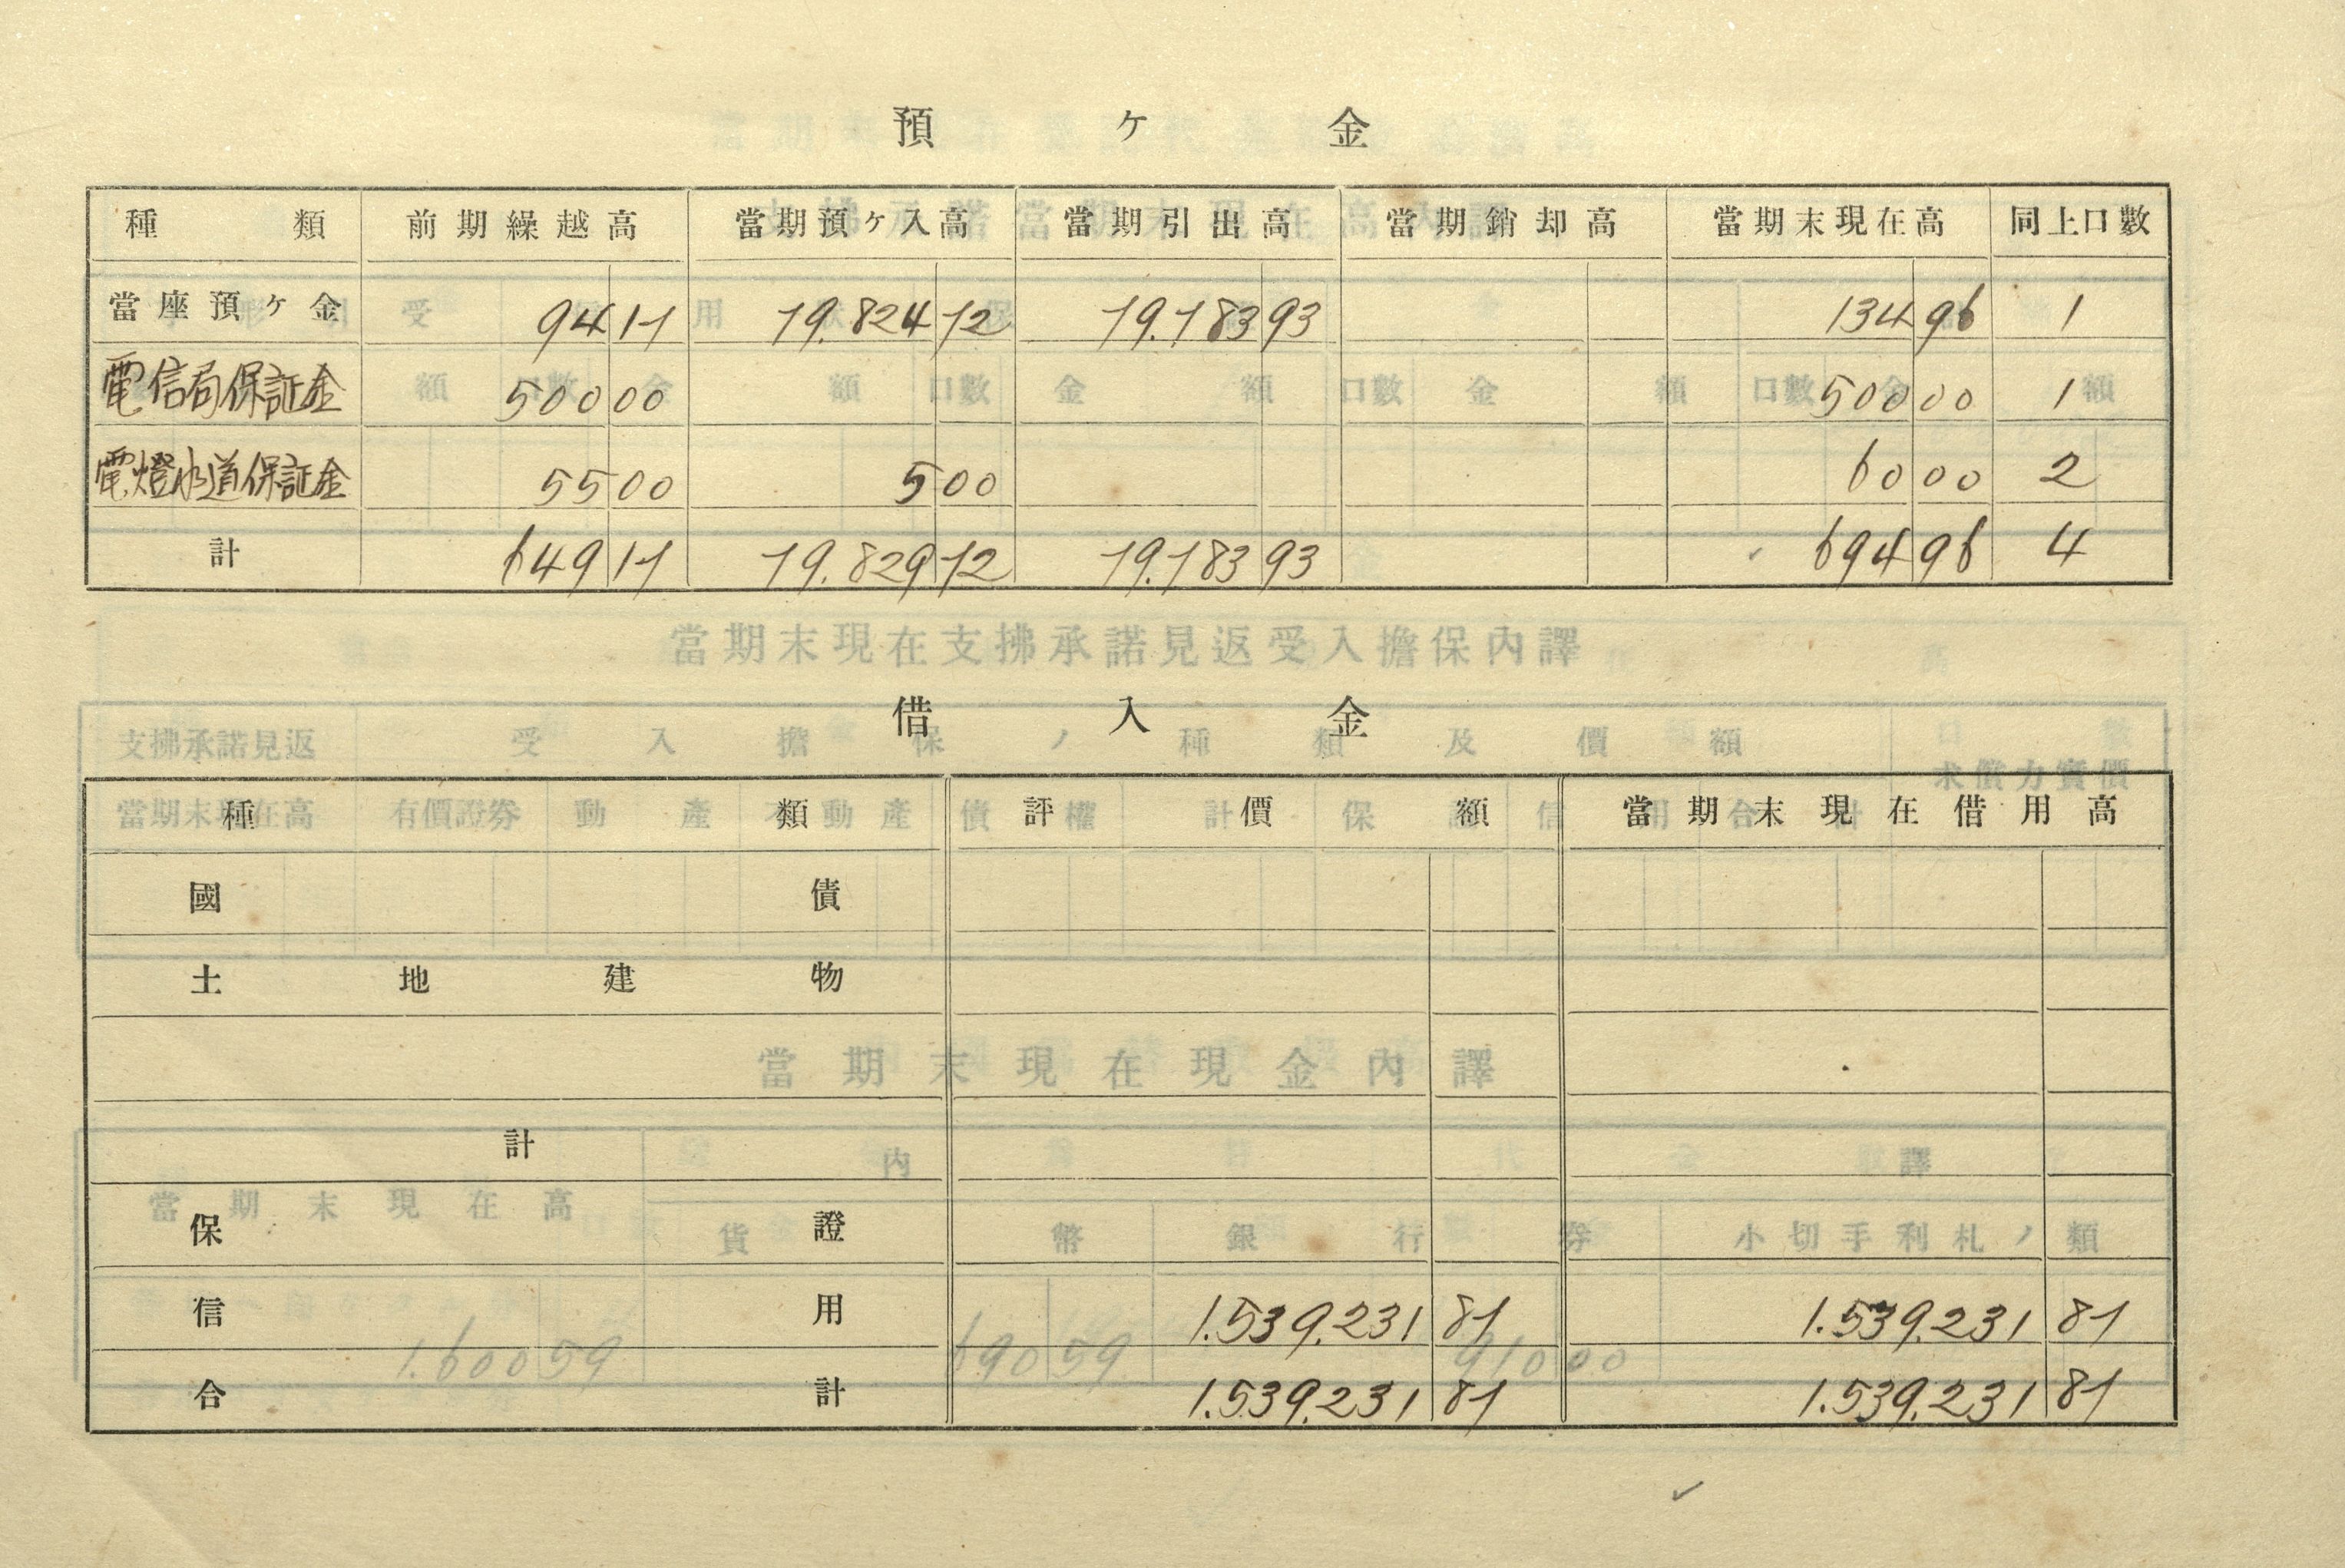 預ケ金
種類 前期繰越高 當期預ケ入高 當期引出高 當期銷却高 當期末現在高 同上口數
當座預ケ金 94 17 79.824 72 79.783 93 134 96 1
電信局保証金 500 00 500 00 1
電燈水道保証金 55 00 5 00 60 00 2
計 649 17 79.829 72 79.783 93 694 96 4
借入金
種類 評價額 當期末現在借用高
國債
土地建物
計
保證
信用 1.539.231 87 1.539.231 87
合計 1.539.231 87 1.539.231 87